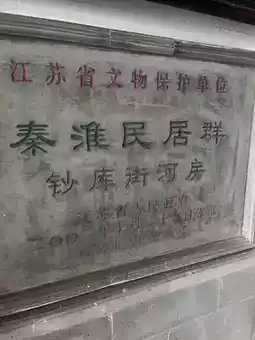 江苏省文物保护单位
秦淮民居群
钞库街河房
江苏省人民政府
二〇〇